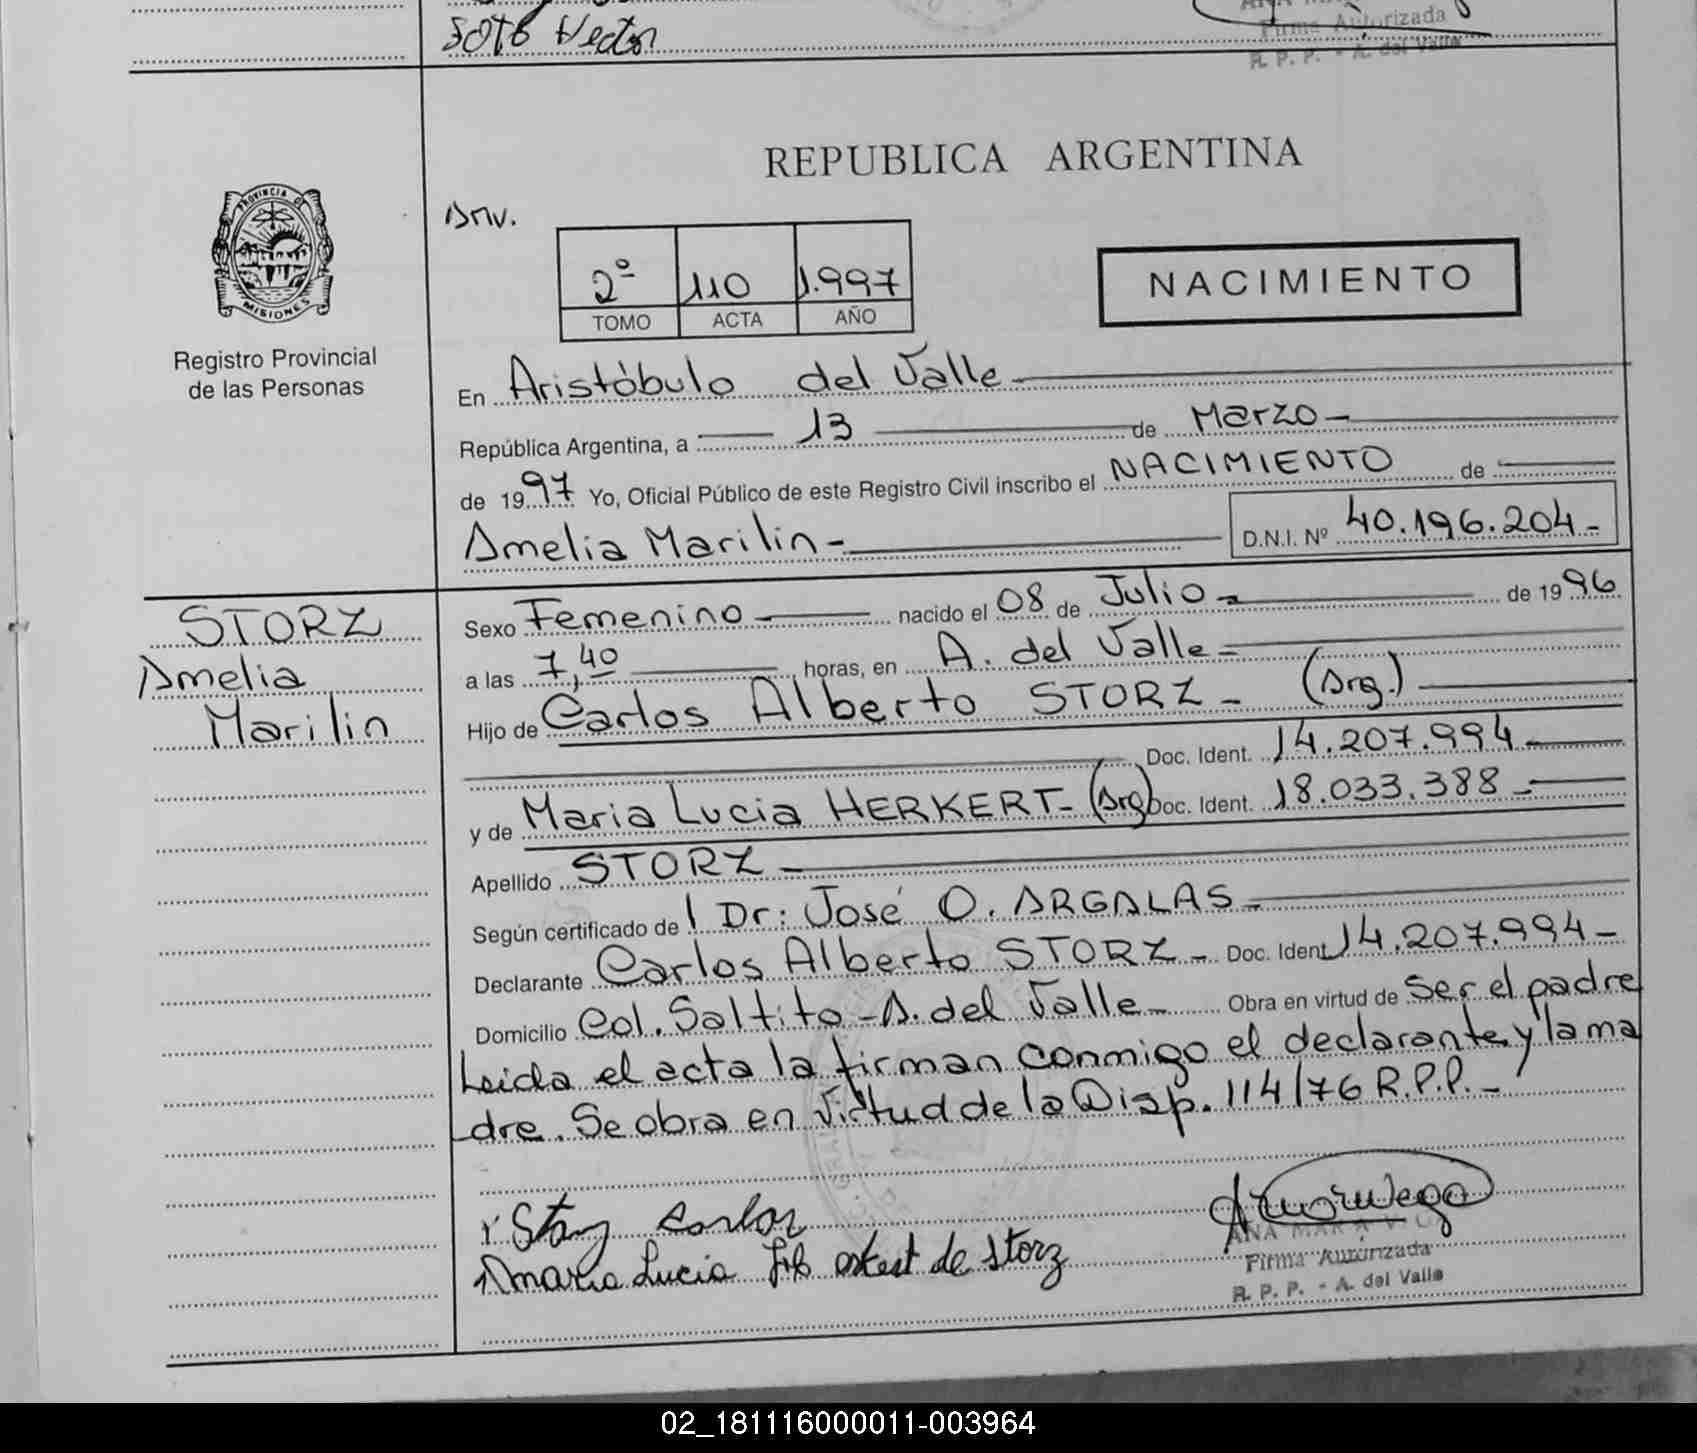 Soto Hector
Firma Autorizada
R. P. P. - A. del Valle
REPUBLICA ARGENTINA
PROVINCIA DE
MISIONES
Registro Provincial
de las Personas
Amv.
2º 110 1.997
TOMO ACTA AÑO
NACIMIENTO
En Aristóbulo del Valle
República Argentina, a 13 de Marzo
de 1997 Yo, Oficial Público de este Registro Civil inscribo el NACIMIENTO de
Amelia Marilin D.N.I. Nº 40.196.204
STORZ
Amelia
Marilin
Sexo Femenino nacido el 08 de Julio de 1996
a las 7,40 horas, en A. del Valle
Hijo de Carlos Alberto STORZ (Arg.)
Doc. Ident. 14.207.994
y de Maria Lucia HERKERT (Arg) Doc. Ident. 18.033.388
Apellido STORZ
Según certificado de l Dr: José O. ARGALAS
Declarante Carlos Alberto STORZ Doc. Ident. 14.207.994
Domicilio Col. Saltito - A. del Valle Obra en virtud de Ser el padre
Leida el acta la firman conmigo el declarante y la ma
dre. Se obra en virtud de la Disp. 114/76 R.P.P.
Storz Carlos
Maria Lucia de Storz
ANA MARIA
Firma Autorizada
R. P. P. - A. del Valle
02_181116000011-003964